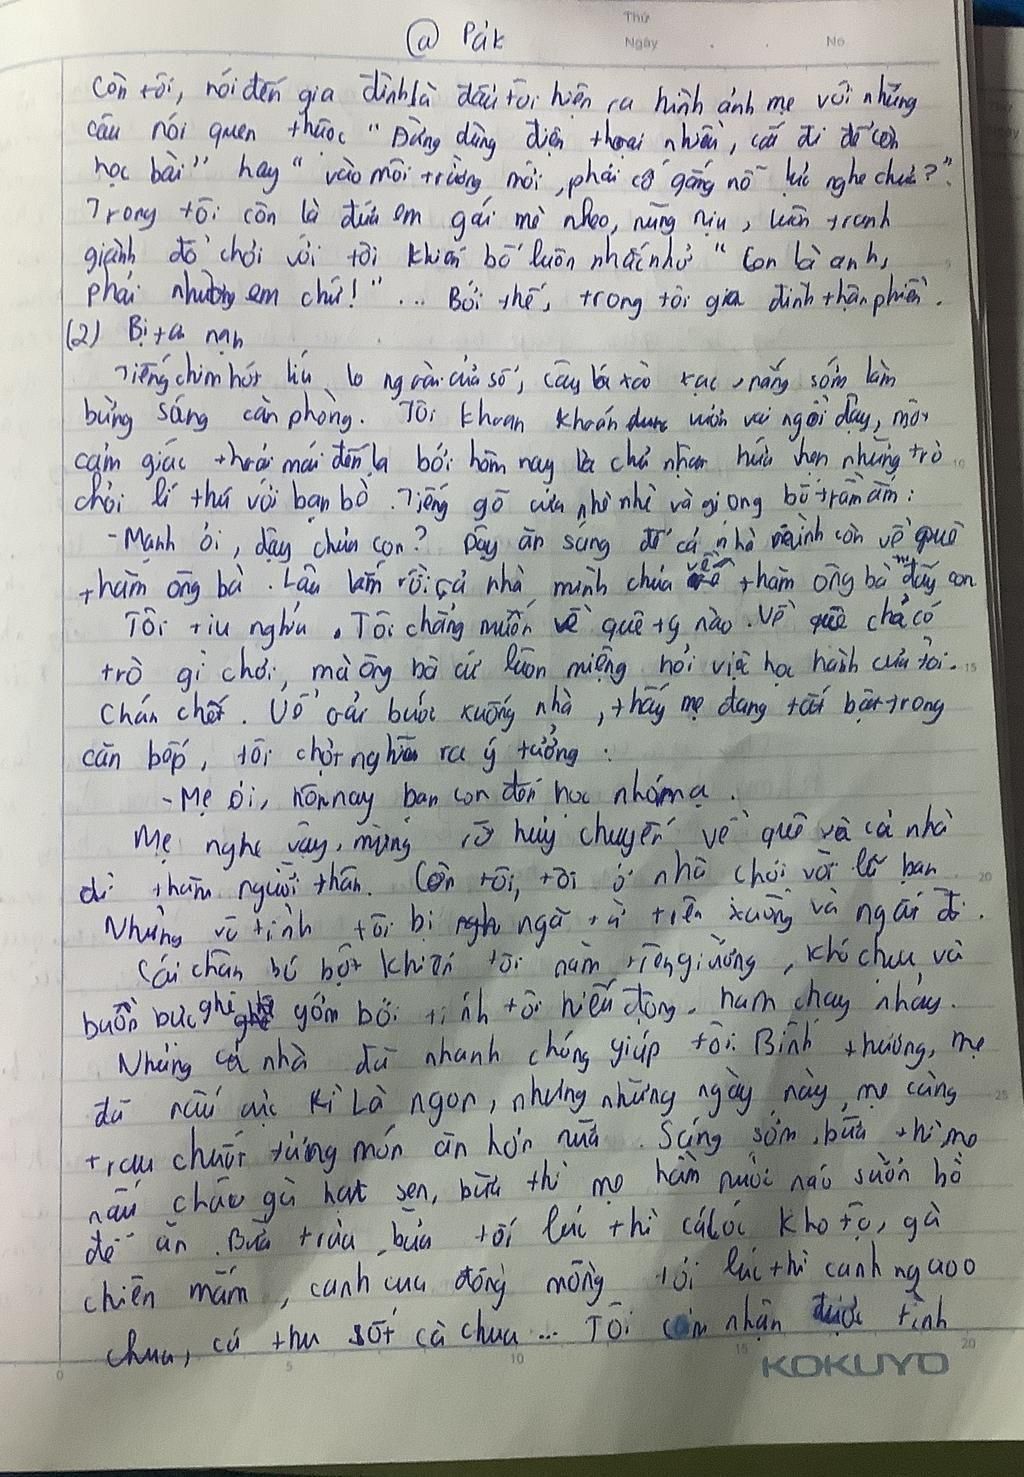 @ Pák
Thứ
Ngày . . No
Còn tôi, nói đến gia đình là đầu tôi hiện ra hình ảnh mẹ với những
câu nói quen thuộc "Đừng dùng điện thoại nhiều, cất đi để còn
học bài" hay "vào môi trường mới, phải cố gắng nỗ lực nghe chưa?".
Trong tôi còn là đứa em gái mè nheo, nũng nịu, luôn tranh
giành đồ chơi với tôi khiến bố luôn nhắc nhở "Con là anh,
phải nhường em chứ!"... Bởi thế, trong tôi gia đình thân
(2) Bị tai nạn
Tiếng chim hót líu lo ngoài cửa sổ, cây lá xào xạc, nắng sớm làm
bừng sáng căn phòng. Tôi khoan khoán vươn vai ngồi dậy, một
cảm giác thoải mái đến lạ bởi hôm nay là chủ nhật hứa hẹn những trò
chơi lí thú với bạn bè. Tiếng gõ cửa nhè nhè và giọng bố trầm ấm:
- Mạnh ơi, dậy chưa con? Dậy ăn sáng để cả nhà mình còn về quê
thăm ông bà. Lâu lắm rồi cả nhà mình chưa về thăm ông bà đấy con
Tôi tiu nghỉu. Tôi chẳng muốn về quê tý nào. Về quê chả có
trò gì chơi, mà ông bà cứ luôn miệng hỏi việc học hành của tôi.
Chán chết. Uể oải bước xuống nhà, thấy mẹ đang tất bật trong
căn bếp, tôi chợt nghĩ ra ý tưởng:
- Mẹ ơi, hôm nay bạn con đến học nhóm ạ.
Mẹ nghe vậy, mừng rỡ hủy chuyến về quê và cả nhà
đi thăm người thân. Còn tôi, tôi ở nhà chơi với lũ bạn
Nhưng vô tình tôi bị ngã từ trên xuống và ngất đi.
Cái chân bó bột khiến tôi nằm trên giường, khó chịu và
buồn bực ghê gớm bởi tính tôi hiếu động, ham chạy nhảy.
Nhưng cả nhà đã nhanh chóng giúp tôi. Bình thường, mẹ
đã nấu cực kì là ngon, nhưng những ngày này, mẹ càng
trau chuốt từng món ăn hơn nữa. Sáng sớm, bữa thì mẹ
nấu cháo gà hạt sen, bữa thì mẹ hầm nước náo sườn bò
để ăn. Bữa trưa, bữa tối lúc thì cá lóc kho tộ, gà
chiên mắm, canh cua đồng mồng tơi lúc thì canh ngao
chua, cá thu sốt cà chua... Tôi cảm nhận được tình
KOKUYO